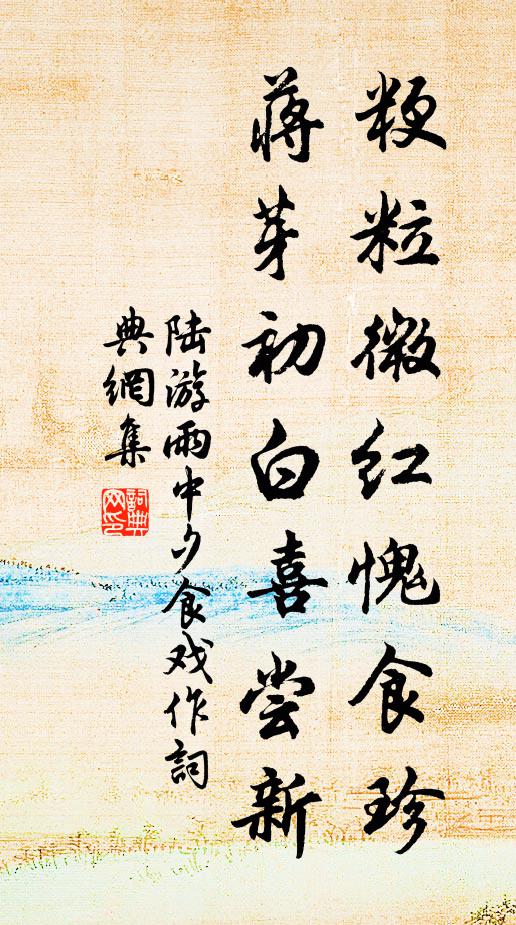 粳粒微红愧食珍
蒋芽初白喜尝新
陆游雨中夕食戏作詞
典網集
詞典网印